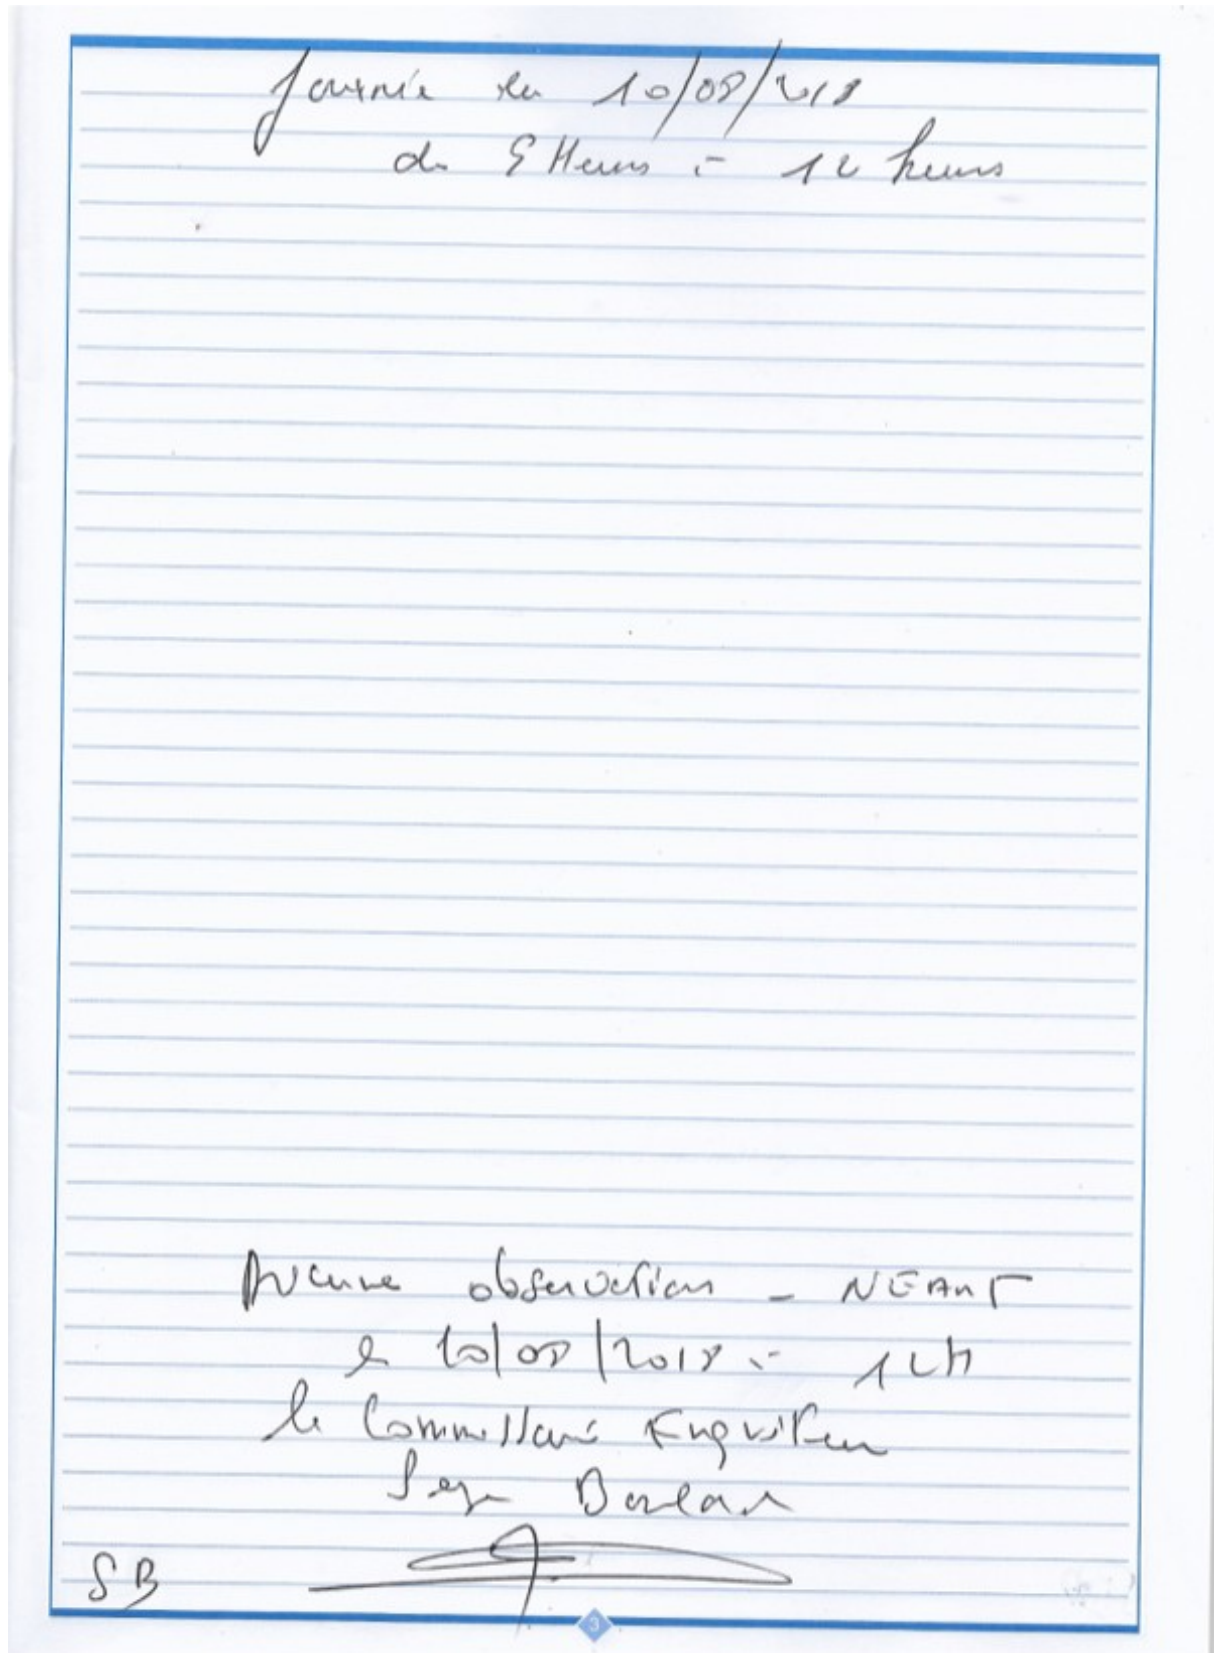 Journée du 10/08/2018
de 9 Heures à 12 heures
Aucune observation - NEANT
le 10/08/2018 à 12H
le Commissaire Enquêteur
Serge
SB
3